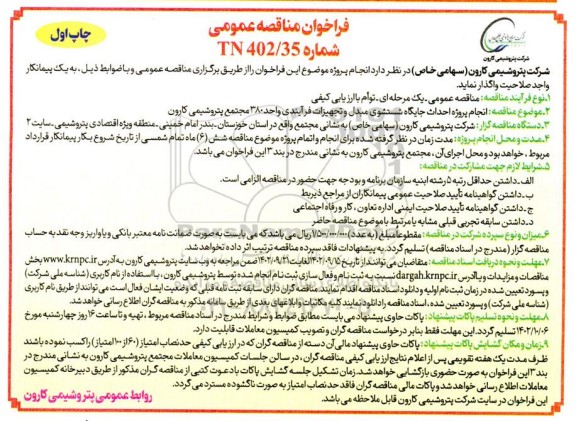 چاپ اول
فراخوان مناقصه عمومی
شماره TN 402/35
شرکت پتروشیمی کارون
شرکت پتروشیمی کارون (سهامی خاص) در نظر دارد انجام پروژه موضوع این فراخوان را از طریق برگزاری مناقصه عمومی و با ضوابط ذیل، به یک پیمانکار
واجد صلاحیت واگذار نماید.
۱.نوع فرآیند مناقصه: مناقصه عمومی ـ یک مرحله ای ـ توأم با ارزیابی کیفی
۲.موضوع مناقصه: انجام پروژه احداث جایگاه شستشوی مبدل و تجهیزات فرآیندی واحد ۳۸۰ مجتمع پتروشیمی کارون
۳.دستگاه مناقصه گزار: شرکت پتروشیمی کارون (سهامی خاص) به نشانی مجتمع واقع در استان خوزستان ـ بندر امام خمینی ـ منطقه ویژه اقتصادی پتروشیمی ـ سایت ۲
۴.مدت و محل انجام پروژه: مدت زمان در نظر گرفته شده برای انجام و اتمام پروژه موضوع مناقصه شش (۶) ماه تمام شمسی از تاریخ شروع بکار پیمانکار قرارداد
مربوط، خواهد بود و محل اجرای آن، مجتمع پتروشیمی کارون به نشانی مندرج در بند ۳ این فراخوان می باشد.
۵.شرایط لازم جهت مشارکت در مناقصه:
الف ـ داشتن حداقل رتبه ۵ رشته ابنیه سازمان برنامه و بودجه جهت حضور در مناقصه الزامی است.
ب ـ داشتن گواهینامه تأیید صلاحیت عمومی پیمانکاران از مراجع ذیربط
ج ـ داشتن گواهینامه تأیید صلاحیت ایمنی اداره تعاون، کار و رفاه اجتماعی
د ـ داشتن سابقه تجربی قبلی مشابه یا مرتبط با موضوع مناقصه حاضر
۶.میزان و نوع سپرده شرکت در مناقصه: مقطوعا مبلغ (به عدد) ریال می باشد که می بایست به صورت ضمانت نامه معتبر بانکی و یا واریز وجه نقد به حساب
مناقصه گزار (مندرج در اسناد مناقصه) تسلیم گردد. به پیشنهادات فاقد سپرده مناقصه ترتیب اثر داده نخواهد شد.
۷.مهلت و نحوه دریافت اسناد مناقصه: متقاضیان می توانند از تاریخ ۱۴۰۲/۰۹/۱۵ لغایت ۱۴۰۲/۰۹/۲۱ ضمن مراجعه به وب سایت پتروشیمی کارون به آدرس www.krnpc.ir بخش
مناقصات و مزایدات و یا آدرس dargah.krnpc.ir نسبت به ثبت نام و فعال سازی ثبت نام انجام شده توسط پتروشیمی کارون، با استفاده از نام کاربری (شناسه ملی شرکت)
و پسورد تعیین شده در زمان ثبت نام اولیه و دانلود اسناد مناقصه اقدام نمایند. مناقصه گران دارای سابقه ثبت نامه قبلی که وضعیت ایشان فعال است می توانند از طریق نام کاربری
(شناسه ملی شرکت) و پسورد تعیین شده، اسناد مناقصه را دانلود نمایند کلیه مکاتبات و ابلاغهای بعدی از طریق سامانه مذکور به مناقصه گران اطلاع رسانی خواهد شد.
۸.مهلت و نحوه تسلیم پاکات پیشنهاد: پاکات حاوی پیشنهاد می بایست مطابق ضوابط و شرایط مندرج در اسناد مناقصه مربوط، تهیه و تا ساعت ۱۶ روز چهارشنبه مورخ
۱۴۰۲/۱۰/۰۶ تسلیم گردد. این مهلت فقط بنابر درخواست مناقصه گران و تصویب کمیسیون معاملات قابلیت دارد.
۹.زمان و مکان گشایش پاکات پیشنهاد: پاکات حاوی پیشنهاد مالی آن دسته از مناقصه گران که در ارزیابی کیفی حد نصاب امتیاز (۶۰ از ۱۰۰ امتیاز) را کسب نموده باشند
ظرف مدت یک هفته تقویمی پس از اعلام نتایج ارزیابی کیفی مناقصه گران، در سالن جلسات کمیسیون معاملات مجتمع پتروشیمی کارون به نشانی مندرج در
بند ۳ این فراخوان به صورت حضوری بازگشایی خواهد شد. زمان تشکیل جلسه گشایش پاکات با دعوت کتبی از مناقصه گران مذکور از طریق دبیرخانه کمیسیون
معاملات اطلاع رسانی خواهد شد و پاکات مالی مناقصه گران فاقد حد نصاب امتیاز به صورت ناگشوده مسترد می گردد.
این فراخوان در سایت شرکت پتروشیمی کارون قابل ملاحظه می باشد.
روابط عمومی پتروشیمی کارون